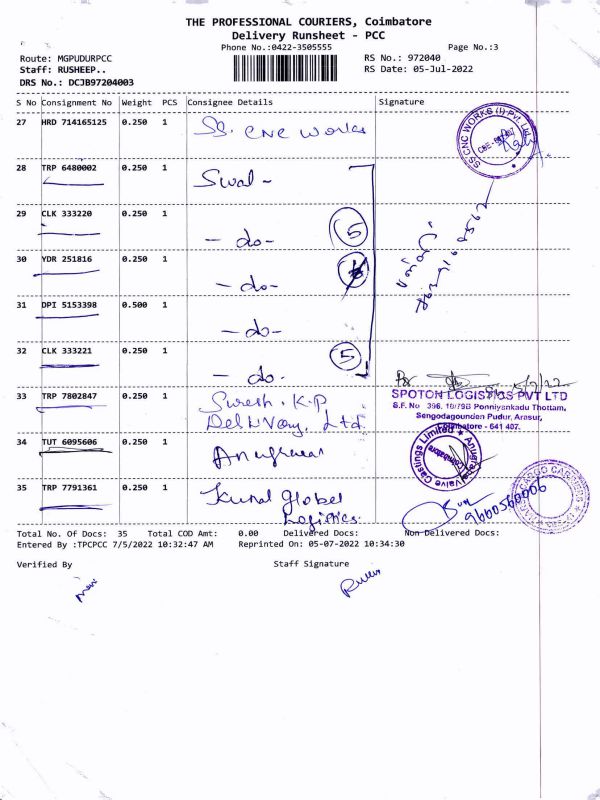 THE PROFESSIONAL COURIERS, Coimbatore
Delivery Runsheet - PCC
Phone No.:0422-3505555
Page No.:3
Route: MGPUDURPCC
RS No.: 972040
Staff: RUSHEEP..
RS Date: 05-Jul-2022
DRS No.: DCJB97204003
S No Consignment No Weight PCS Consignee Details Signature
27 HRD 714165125 0.250 1 SS. CNC Works
SS CNC WORKS (I) Pvt. Ltd.
28 TRP 6480002 0.250 1 Swal -
29 CLK 333220 0.250 1 - do - 5
30 YDR 251816 0.250 1 - do -
31 DPI 5153398 0.500 1 - do -
32 CLK 333221 0.250 1 - do - 5
33 TRP 7802847 0.250 1 Suresh . K.P
Delivery. Ltd.
5/7/22
SPOTON LOGISTICS PVT LTD
S.F. No 396, 10/79B Ponniyankadu Thottam,
Sengodagounden Pudur, Arasur,
Coimbatore - 641 407.
34 TUT 6095606 0.250 1
Anugraha Valve Castings Limited
Coimbatore
35 TRP 7791361 0.250 1 Kunal Global
Logistics.
9600560006
Total No. Of Docs: 35 Total COD Amt: 0.00 Delivered Docs: Non Delivered Docs:
Entered By :TPCPCC 7/5/2022 10:32:47 AM Reprinted On: 05-07-2022 10:34:30
Verified By
Staff Signature